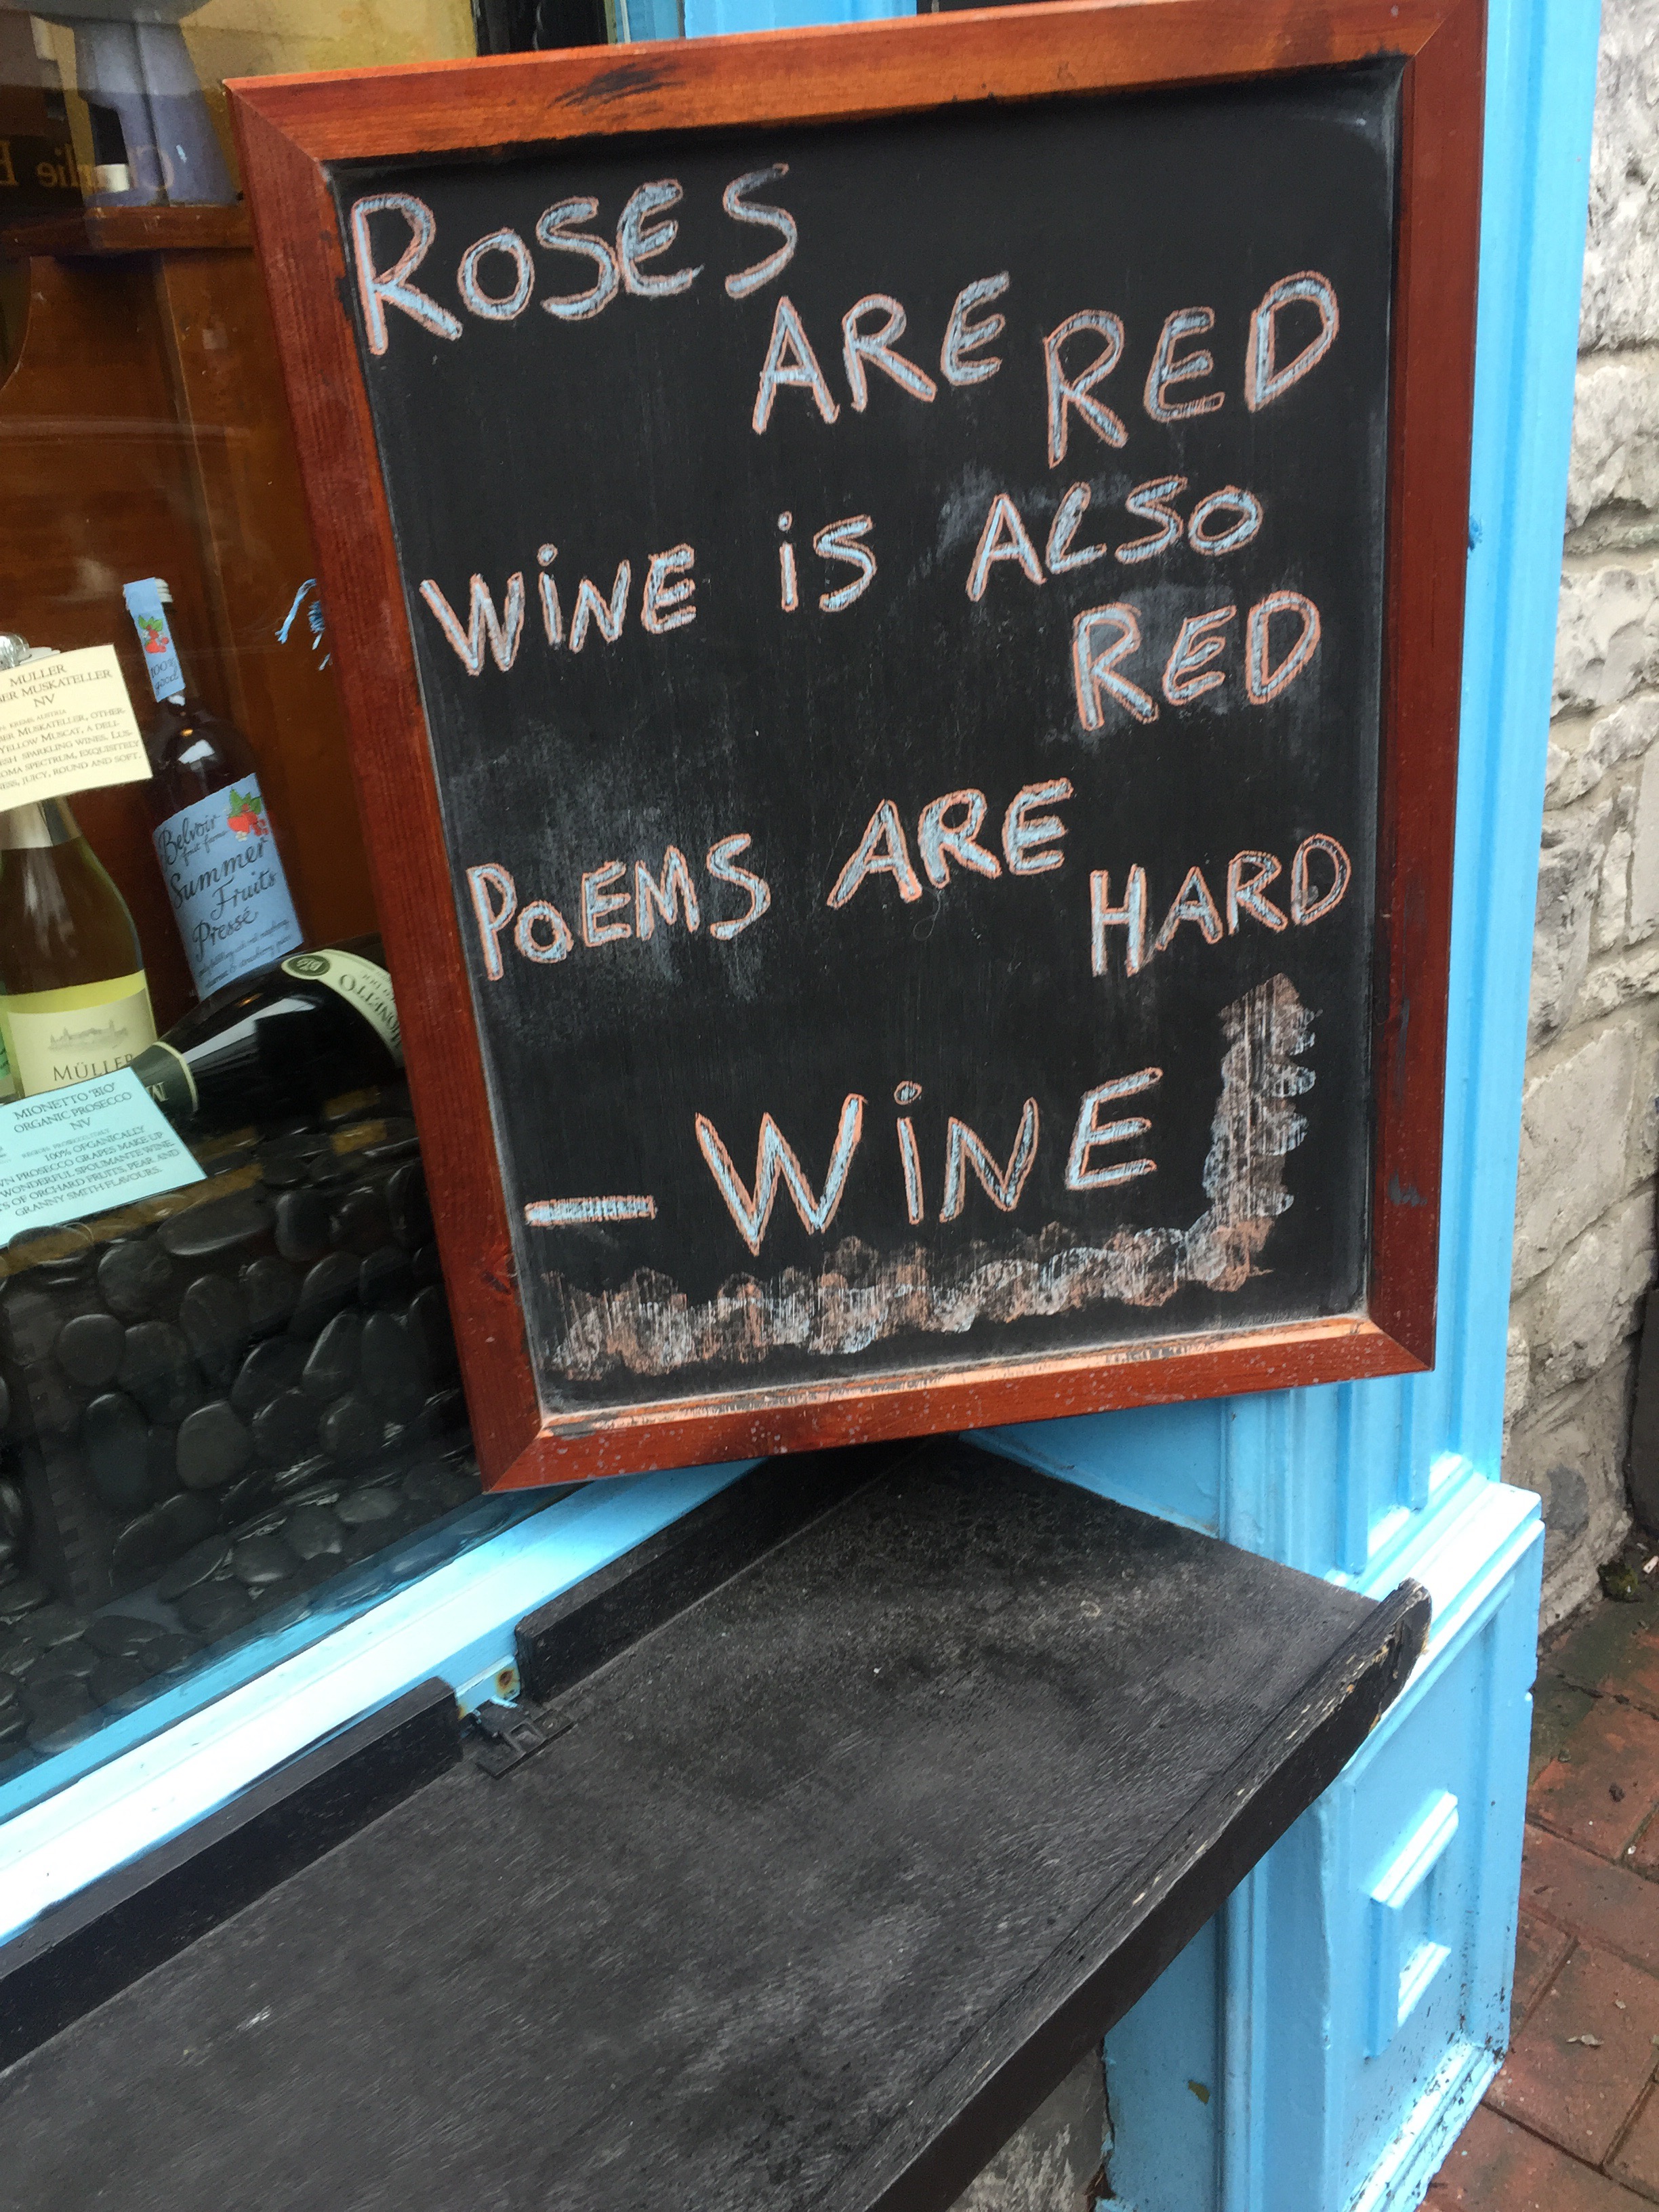 ROSES
ARE RED
WINE IS ALSO
RED
POEMS ARE
HARD
– WINE
MULLER
MUSKATELLER
NV
MUSKATELLER, OTHER
YELLOW MUSCAT, A
SPARKLING WINES.
SPECTRUM, EXQUISITELY
JUICY, ROUND AND SOFT.
100%
good
Belvoir
fruit farms
Summer
Fruits
Pressé
BIO
MIONETTO
MÜLLER
M
MIONETTO 'BIO'
ORGANIC PROSECCO
NV
100% ORGANICALLY
PROSECCO GRAPES MAKE UP
WONDERFUL SPOUMANTE WINE.
OF ORCHARD FRUITS, PEAR AND
GRANNY SMITH FLAVOURS.